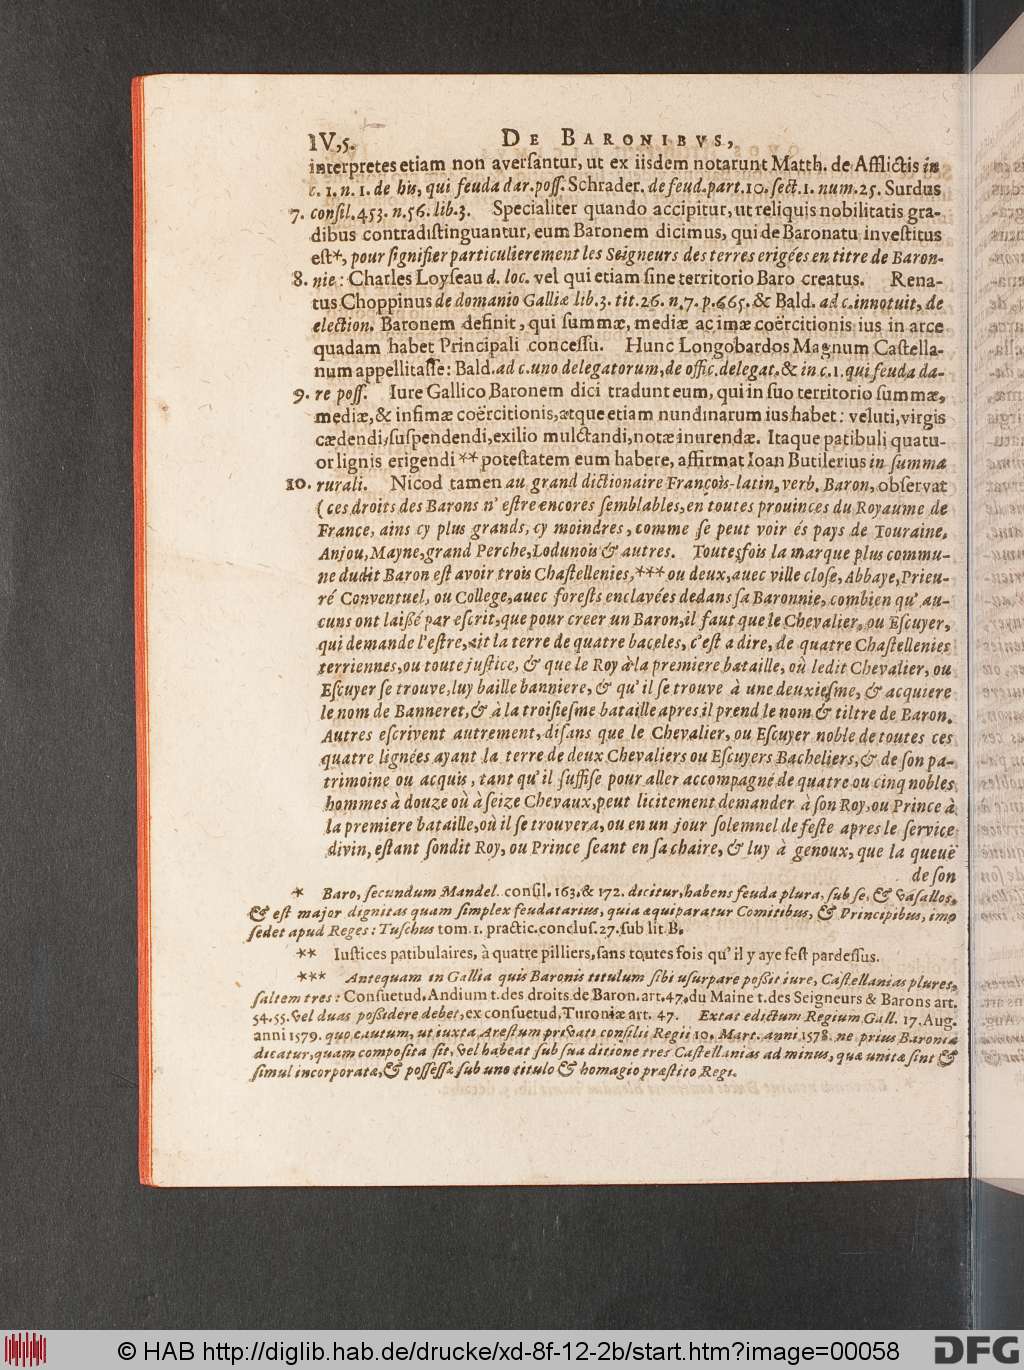 IV,5. DE BARONIBVS,
interpretes etiam non averſantur, ut ex iisdem notarunt Matth. de Afflictis in
c. 1. n. 1. de his, qui feuda dar. poſſ. Schrader. de feud. part. 10. ſect. 1. num. 25. Surdus
7. conſil. 453. n. 56. lib. 3. Specialiter quando accipitur, ut reliquis nobilitatis gra-
dibus contradiſtinguantur, eum Baronem dicimus, qui de Baronatu inveſtitus
eſt*, pour ſignifier particulierement les Seigneurs des terres erigées en titre de Baron-
8. nie: Charles Loyſeau d. loc. vel qui etiam ſine territorio Baro creatus. Rena-
tus Choppinus de domanio Galliæ lib. 3. tit. 26. n. 7. p. 665. & Bald. ad c. innotuit, de
election. Baronem definit, qui ſummæ, mediæ ac imæ coërcitionis ius in arce
quadam habet Principali conceſſu. Hunc Longobardos Magnum Caſtella-
num appellitaſſe: Bald. ad c. uno delegatorum, de offic. delegat. & in c. 1. qui feuda da-
9. re poſſ. Iure Gallico Baronem dici tradunt eum, qui in ſuo territorio ſummæ,
mediæ, & infimæ coërcitionis, atque etiam nundinarum ius habet: veluti, virgis
cædendi, ſuſpendendi, exilio mulctandi, notæ inurendæ. Itaque patibuli quatu-
or lignis erigendi ** poteſtatem eum habere, affirmat Ioan Butilerius in ſumma
10. rurali. Nicod tamen au grand dictionaire François-latin, verb. Baron, obſervat
(ces droits des Barons n' eſtre encores ſemblables, en toutes prouinces du Royaume de
France, ains cy plus grands, cy moindres, comme ſe peut voir és pays de Touraine,
Anjou, Mayne, grand Perche, Lodunois & autres. Toutesfois la marque plus commu-
ne dudit Baron eſt avoir trois Chaſtellenies, *** ou deux, auec ville cloſe, Abbaye, Prieu-
ré Conventuel, ou College, auec foreſts enclavées dedans ſa Baronnie, combien qu' au-
cuns ont laißé par eſcrit, que pour creer un Baron, il faut que le Chevalier, ou Eſcuyer,
qui demande l'eſtre, ait la terre de quatre baceles, c'eſt a dire, de quatre Chaſtellenies
terriennes, ou toute juſtice, & que le Roy à la premiere bataille, où ledit Chevalier, ou
Eſcuyer ſe trouve, luy baille banniere, & qu' il ſe trouve à une deuxieſme, & acquiere
le nom de Banneret, & à la troiſieſme bataille apres il prend le nom & tiltre de Baron.
Autres eſcrivent autrement, diſans que le Chevalier, ou Eſcuyer noble de toutes ces
quatre lignées ayant la terre de deux Chevaliers ou Eſcuyers Bacheliers, & de ſon pa-
trimoine ou acquis, tant qu' il ſuffiſe pour aller accompagné de quatre ou cinq nobles
hommes à douze où à ſeize Chevaux, peut licitement demander à ſon Roy, ou Prince à
la premiere bataille, où il ſe trouvera, ou en un jour ſolemnel de feſte apres le ſervice
divin, eſtant ſondit Roy, ou Prince ſeant en ſa chaire, & luy à genoux, que la queuë
de ſon
* Baro, ſecundum Mandel. conſil. 163. & 172. dicitur, habens feuda plura, ſub ſe, & vaſallos,
& eſt major dignitas quam ſimplex feudatarius, quia æquiparatur Comitibus, & Principibus, imo
ſedet apud Reges: Tuſchus tom. 1. practic. concluſ. 27. ſub lit B.
** Iuſtices patibulaires, à quatre pilliers, ſans toutes fois qu' il y aye feſt pardeſſus.
*** Antequam in Gallia quis Baronis titulum ſibi uſurpare poſſit iure, Caſtellanias plures,
ſaltem tres: Conſuetud. Andium t. des droits de Baron. art. 47. du Maine t. des Seigneurs & Barons art.
54. 55. vel duas poſſidere debet, ex conſuetud. Turoniæ art. 47. Extat edictum Regium Gall. 17. Aug.
anni 1579. quo cautum, ut iuxta Areſtum privati conſilii Regii 10. Mart. anni 1578. ne prius Baronia
dicatur, quam compoſita ſit, vel habeat ſub ſua ditione tres Caſtellanias ad minus, quæ unitæ ſint &
ſimul incorporatæ, & poſſeſſæ ſub uno titulo & homagio præſtito Regi.
© HAB http://diglib.hab.de/drucke/xd-8f-12-2b/start.htm?image=00058
DFG